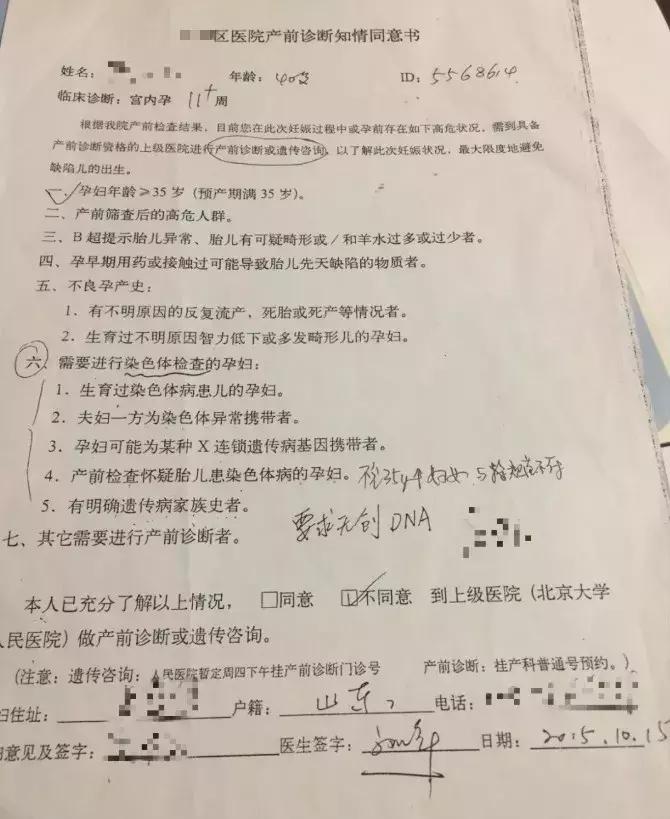 区医院产前诊断知情同意书
姓名： 年龄：40岁 ID：5568614
临床诊断：宫内孕 11+周
根据我院产前检查结果，目前您在此次妊娠过程中或孕前存在如下高危状况，需到具备
产前诊断资格的上级医院进行产前诊断或遗传咨询，以了解此次妊娠状况，最大限度地避免
缺陷儿的出生。
一、孕妇年龄≥35岁（预产期满35岁）。
二、产前筛查后的高危人群。
三、B超提示胎儿异常、胎儿有可疑畸形或/和羊水过多或过少者。
四、孕早期用药或接触过可能导致胎儿先天缺陷的物质者。
五、不良孕产史：
1．有不明原因的反复流产，死胎或死产等情况者。
2．生育过不明原因智力低下或多发畸形儿的孕妇。
六、需要进行染色体检查的孕妇：
1．生育过染色体病患儿的孕妇。
2．夫妇一方为染色体异常携带者。
3．孕妇可能为某种X连锁遗传病基因携带者。
4．产前检查怀疑胎儿患染色体病的孕妇。
5．有明确遗传病家族史者。
要求无创DNA
七、其它需要进行产前诊断者。
本人已充分了解以上情况， □同意 □不同意 到上级医院（北京大学
人民医院）做产前诊断或遗传咨询。
（注意：遗传咨询：人民医院暂定周四下午挂产前诊断门诊号 产前诊断：挂产科普通号预约。）
妇住址： 户籍：山东 电话：
意见及签字： 医生签字： 日期：2015.10.15